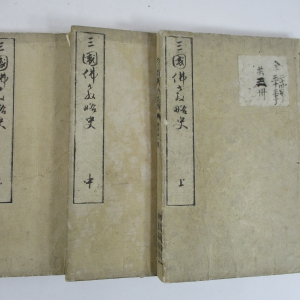 三國佛教略史 上
三國佛教略史 中
三國佛教略史
共五冊